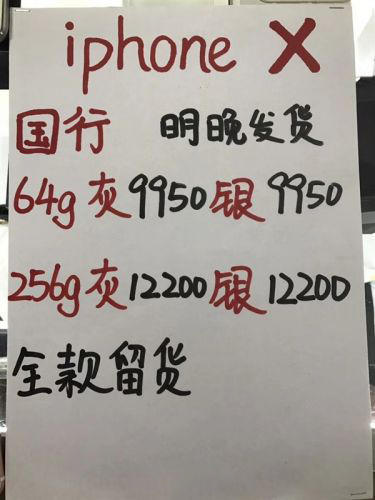 iphone X
国行 明晚发货
64g 灰9950 银9950
256g 灰12200 银12200
全款留货